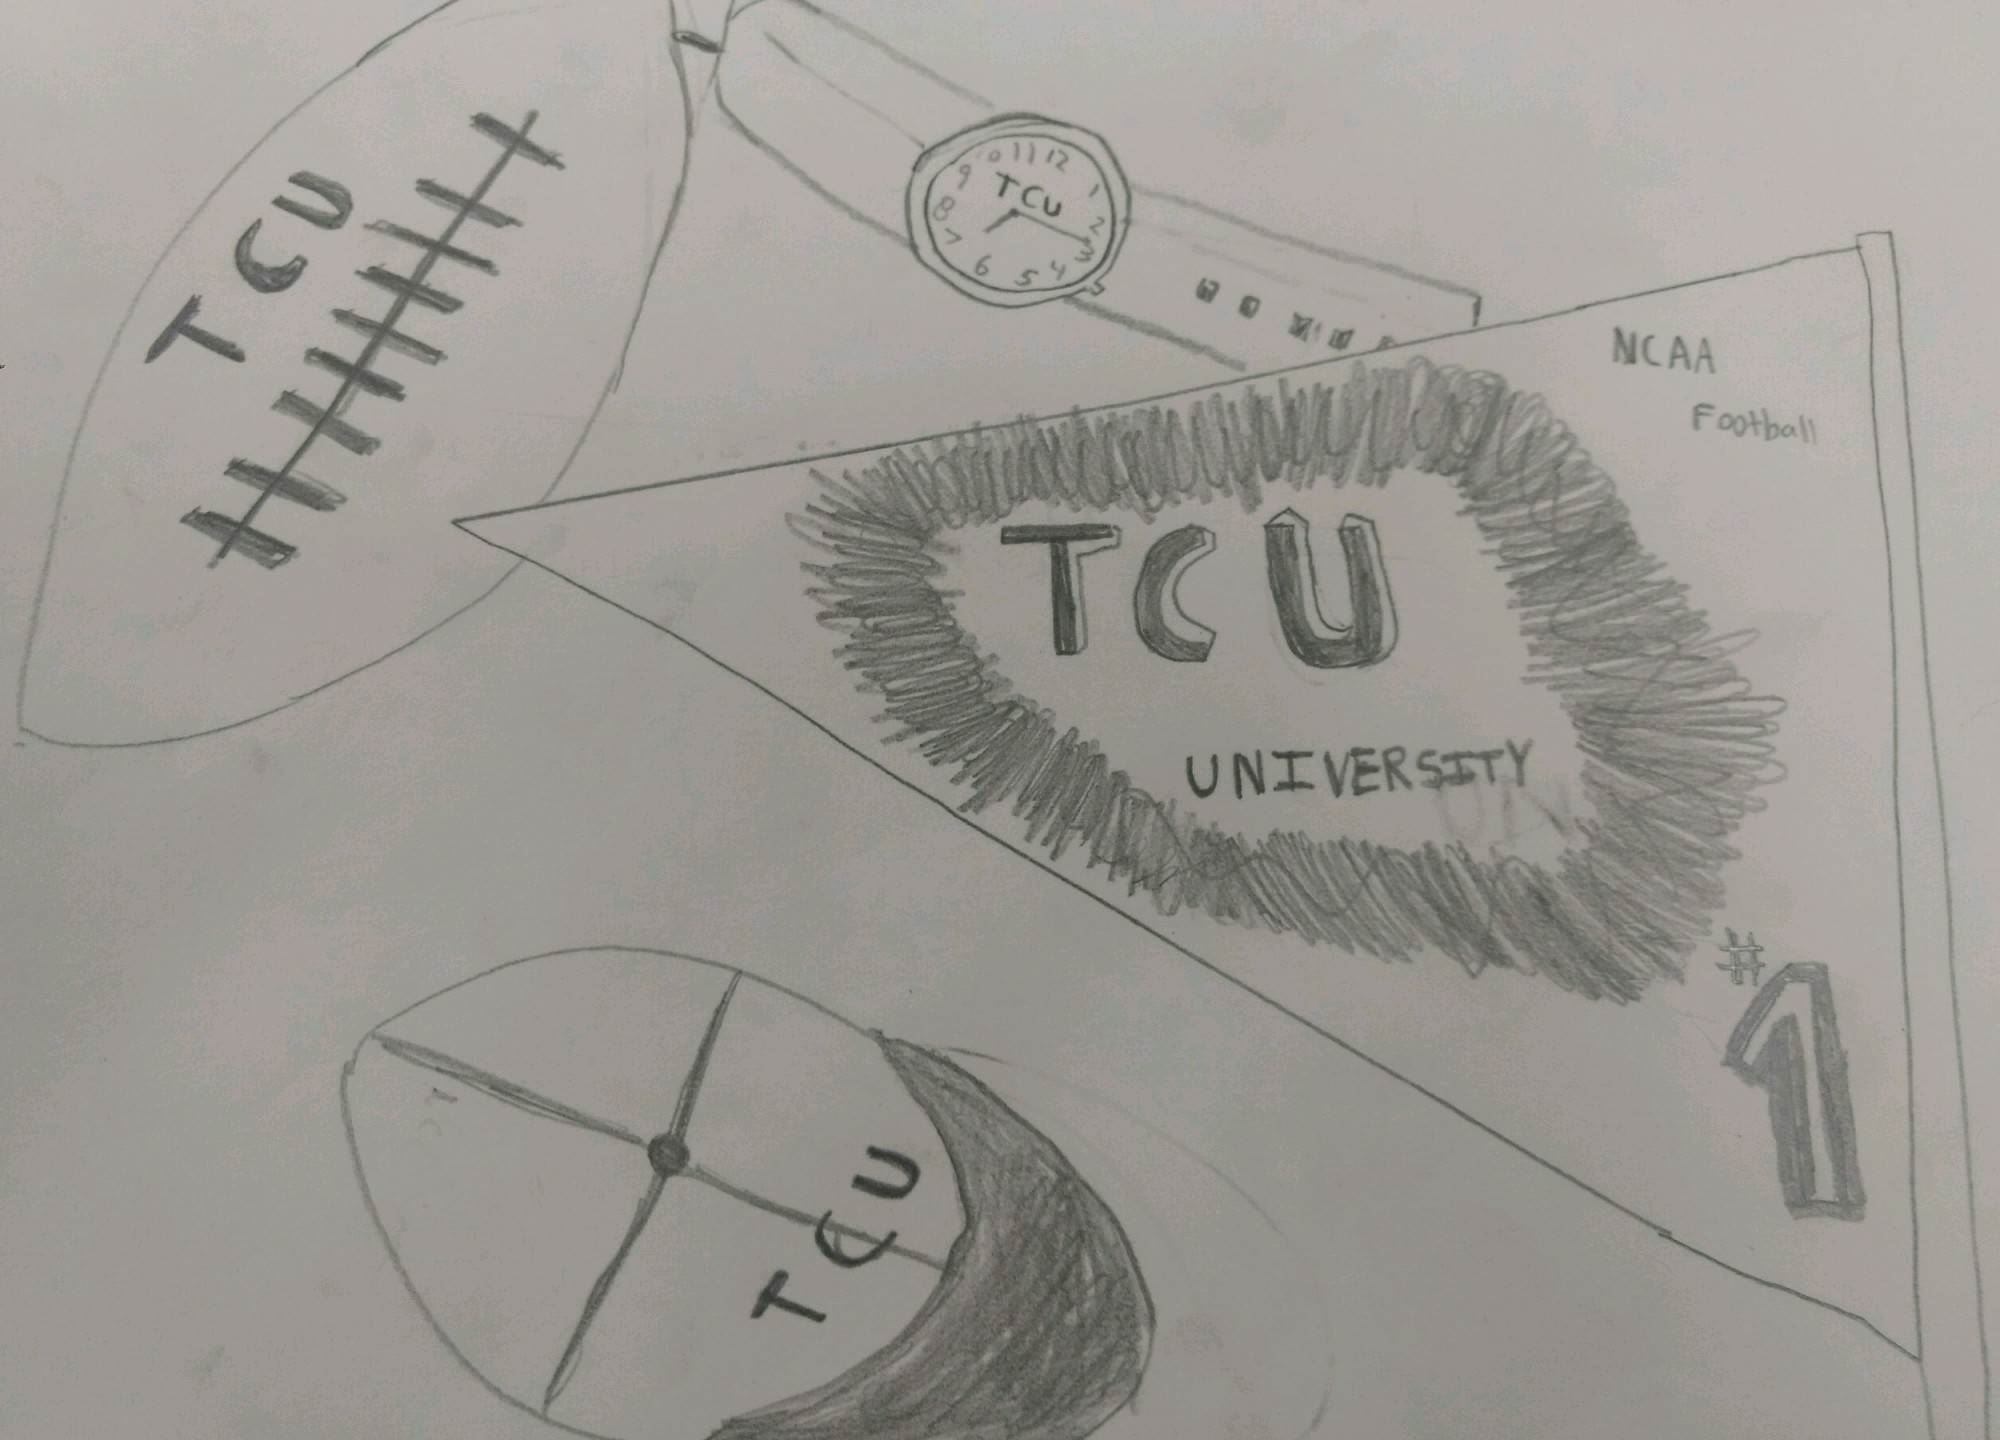 TCU
0 11 12
9 1
TCU
8 2
7 3
6 5 4
NCAA
Football
TCU
UNIVERSITY
#1
TCU